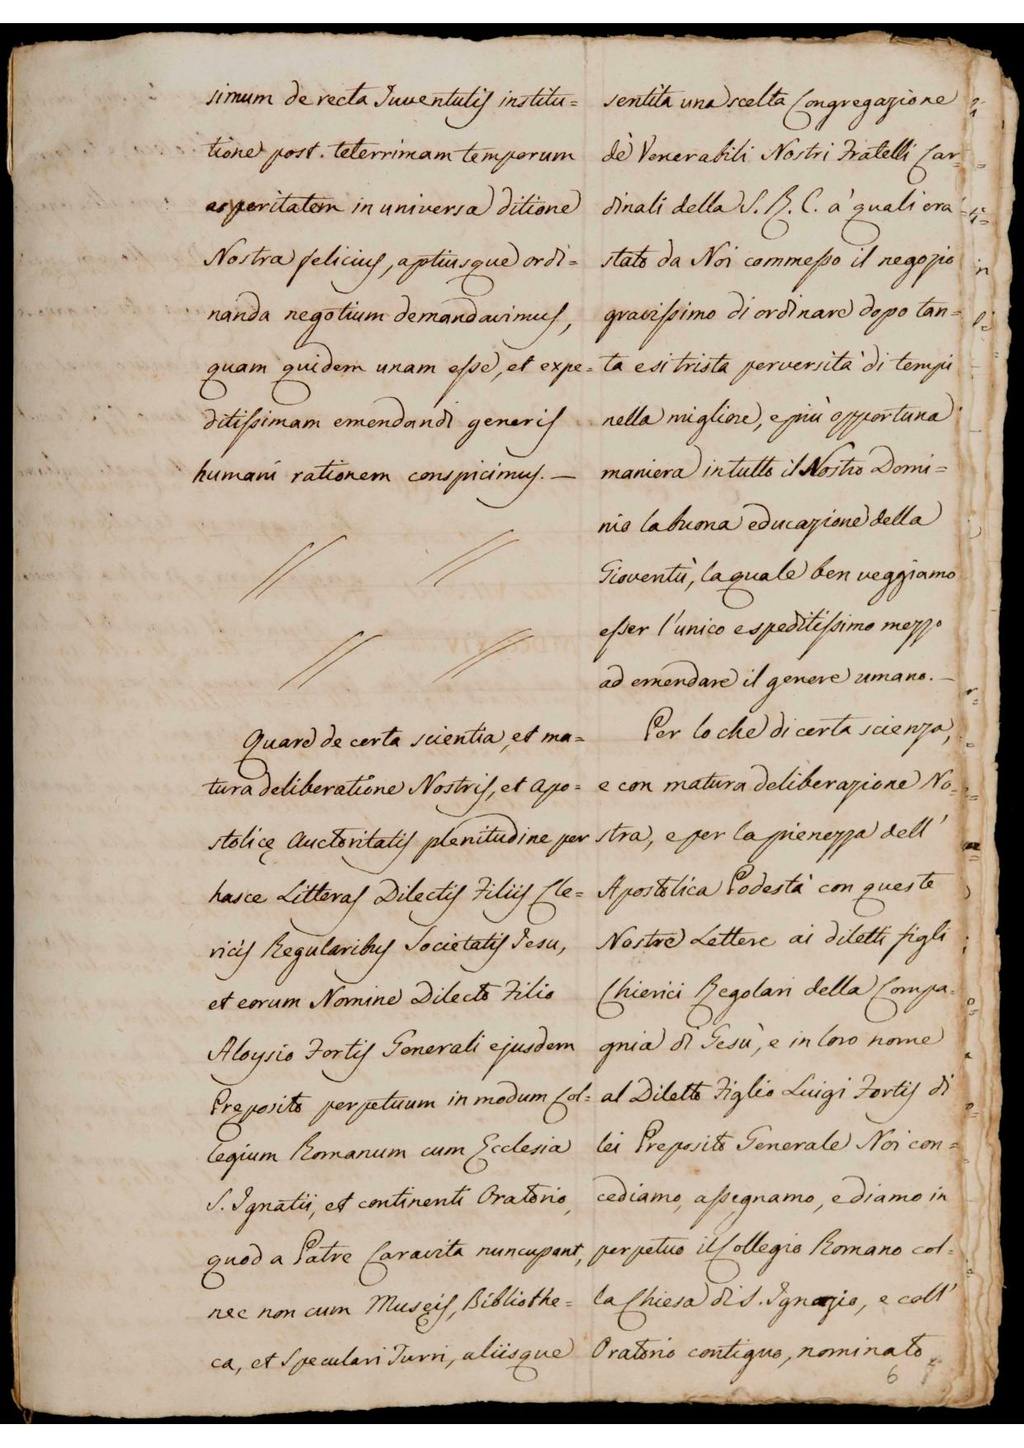 simum de recta Juventutis institu=
tione post teterrimam temporum
asperitatem in universa ditione
Nostra felicius, aptiusque ordi=
nanda negotium demandavimus,
quam quidem unam esse, et expe=
ditissimam emendandi generis
humani rationem conspicimus. —
Quare de certa scientia, et ma=
tura deliberatione Nostris, et Apo=
stolicę Auctoritatis plenitudine per
hasce Litteras Dilectis Filiis Cle=
ricis Regularibus Societatis Jesu,
et eorum Nomine Dilecto Filio
Aloysio Fortis Generali ejusdem
Pręposito perpetuum in modum Col=
legium Romanum cum Ecclesia
S. Ignatii, et continenti Oratorio,
quod a Patre Caravita nuncupant,
nec non cum Musęis, Bibliothe=
ca, et Speculari Turri, aliisque
sentita una scelta Congregazione
de' Venerabili Nostri Fratelli Car=
dinali della S. R. C. a' quali era
stato da Noi commesso il negozio
gravissimo di ordinare dopo tan=
ta e si trista perversità di tempi
nella migliore, e più opportuna
maniera in tutto il Nostro Domi=
nio la buona educazione della
Gioventù, la quale ben veggiamo
esser l'unico e speditissimo mezzo
ad emendare il genere umano. —
Per lo che di certa scienza,
e con matura deliberazione No=
stra, e per la pienezza dell'
Apostolica Podestà con queste
Nostre Lettere ai diletti figli
Chierici Regolari della Compa=
gnia di Gesù, e in loro nome
al Diletto Figlio Luigi Fortis di
lei Preposito Generale Noi con=
cediamo, assegnamo, e diamo in
perpetuo il Collegio Romano col=
la Chiesa di S. Ignazio, e coll'
Oratorio contiguo, nominato
6